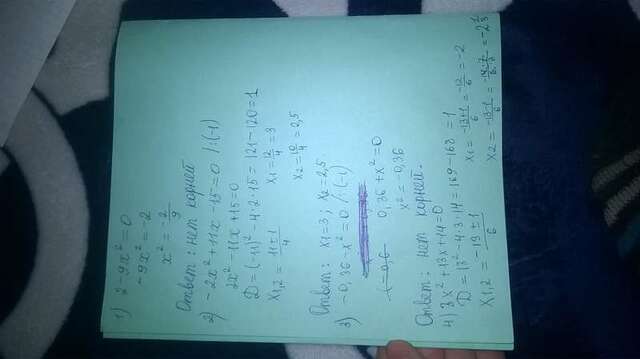 1) 2-9x²=0
-9x²=-2
x²=-2/9
Ответ: нет корней
2) -2x²+11x-15=0 /:(-1)
2x²-11x+15=0
D=(-11)²-4·2·15=121-120=1
x1,2=11±1/4 x1=12/4=3
x2=10/4=2,5
Ответ: x1=3; x2=2,5
3) -0,36-x²=0 /:(-1)
0,36+x²=0
x²=-0,36
Ответ: нет корней.
4) 3x²+13x+14=0
D=13²-4·3·14=169-168=1
x1,2=-13±1/6 x1=-13+1/6=-12/6=-2
x2=-13-1/6=-14·7/6·3=-2 1/3